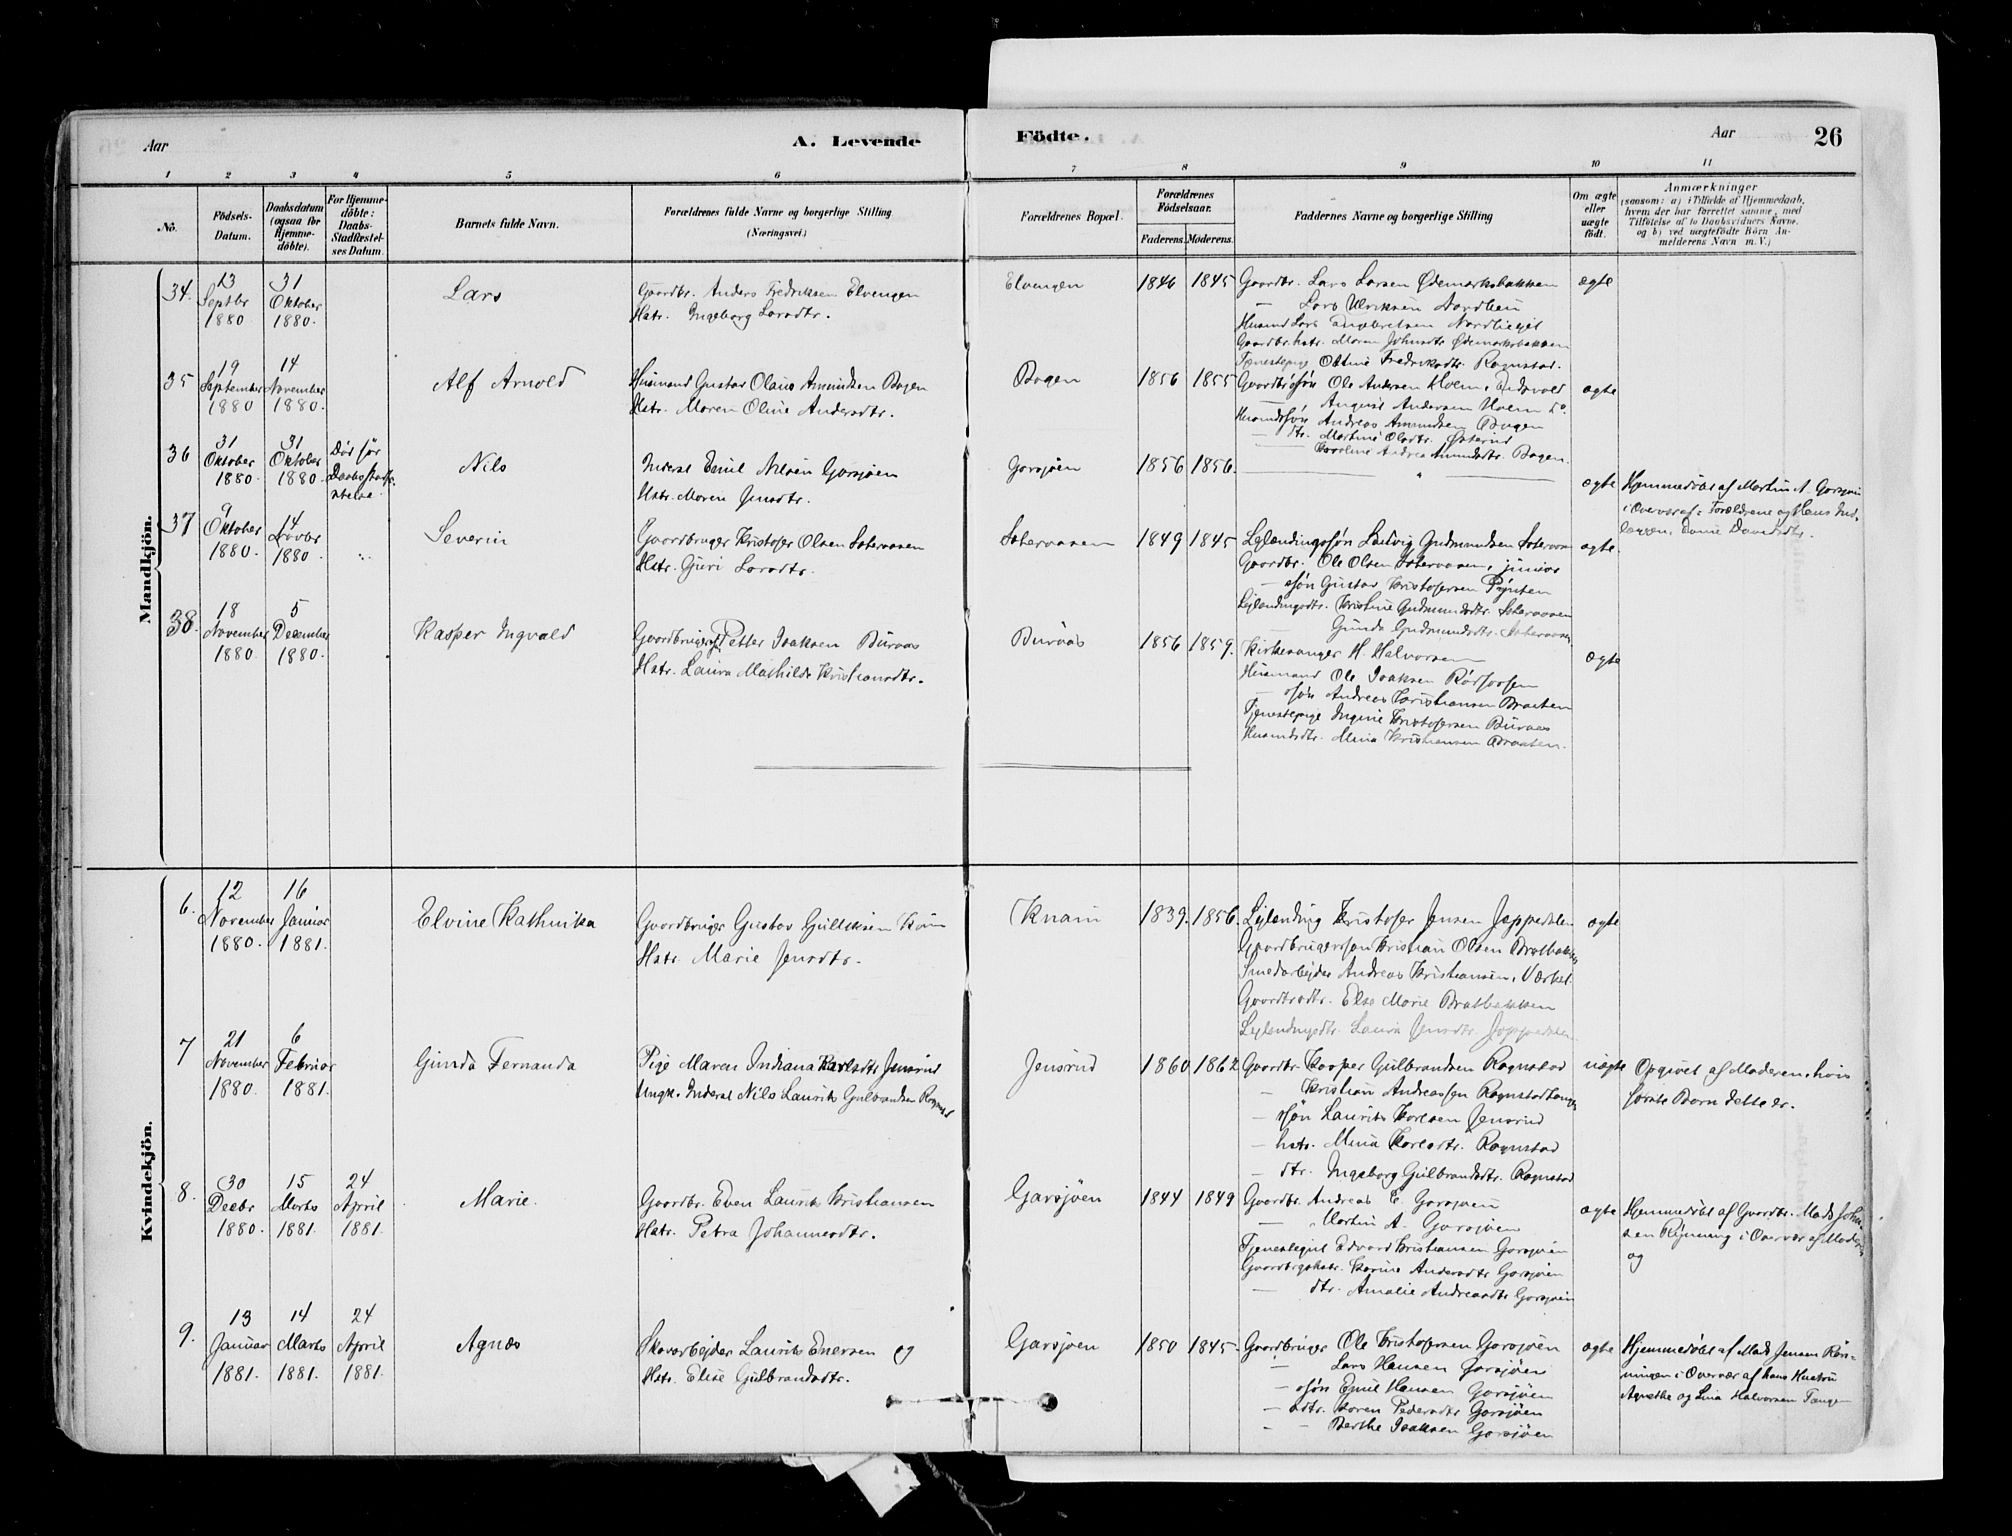 Aar
A. Levende
Födte.
Aar
26
1 2 3 4 5 6 7 8 9 10 11
No.
Födsels-Datum.
Daabsdatum (ogsaa for Hjemme-döbte).
For Hjemme-döbte: Daabs-Stadfæstel-ses Datum.
Barnets fulde Navn.
Forældrenes fulde Navne og borgerlige Stilling (Næringsvei.)
Forældrenes Bopæl.
Forældrenes Födselsaar.
Faderens. Moderens.
Faddernes Navne og borgerlige Stilling
Om ægte eller uægte födt.
Anmærkninger
(saasom: a) i Tilfælde af Hjemmedaab,
hvem der har forrettet samme, med
Tilföielse af to Daabsvidners Navne.
og b) ved uægtefödte Börn An-
melderens Navn m. V.)
Mandkjön.
34. 13 Septbr 1880 31 Oktober 1880. Lars
Gaardbr. Anders Fredriksen Elvengen
Hstr. Ingeborg Larsdtr.
Elvengen 1846 1845
Gaardbr. Lars Larsen Ødemarksbakken
— Lars Ulriksen
Husmd Lars
Gaardbr.hstr. Maren Johnsdtr Ødemarksbakken
Tjenestepige Oline Fredriksdtr. Rognstad.
ægte
35 19 September 1880 14 November 1880. Alf Arnold
Husmand Gustav Olaus Amundsen Bogen
Hstr. Maren Oline Andersdtr.
Bogen 1856 1855
Gaardbrs søn Ole Andersen Holm,
— August Andersen Holm do.
Husmdssøn Andreas Amundsen Bogen
— dtr. Martine Olsdtr. Østerud
Karoline Andrea Amundsdtr. Bogen.
ægte
36 31 Oktober 1880. 31 Oktober 1880. Død før Daabsstadfæstelse. Nils
Inderst Emil Nilsen Garsjøen
Hstr. Maren Jensdtr.
Garsjøen 1856 1856.
— " —
ægte
Hjemmedøbt af Martin A. Garsjøen
i Overvær af: Forældrene og Hans
37 9 Oktober 1880. 14 Novbr 1880. Severin
Gaardbruger Kristofer Olsen Sætervasen
Hstr. Gjeri Larsdtr.
Sætervasen 1849 1845
Leilendingssøn Ludvig Gudmundsen
Gaardbr. Ole Olsen Sætervasen, junior
— søn Gustav Kristofersen
Leilendingsdtr. Kristine Gudmundsdtr. Sætervasen
Gunda Gudmundsdtr. Sætervasen
ægte
38. 18 November 1880. 5 December 1880. Kasper Ingvald
Gaardbruger Petter Isaksen Buraas
Hstr. Laura Mathilde Kristiansdtr.
Buraas 1856 1859.
Kirkesanger H. Halvorsen
Husmand Ole Isaksen
— søn Andreas Kristiansen Braaten
Tjenestepige Ingine Kristofersen Buraas
Husmdsdtr. Mina Kristiansen Braaten.
ægte
Kvindekjön.
6. 12 November 1880. 16 Januar 1881. Elvine Kathinka
Gaardbruger Gustav Gulliksen
Hstr. Marie Jensdtr.
Knain 1839. 1856.
Leilending Kristofer Jensen
Gaardbrugersøn Kristian Olsen Bratbakken
Smedarbeider Andreas Kristiansen, Værket
Gaardbrsdtr. Else Marie Bratbakken
Leilendingsdtr. Laura Jensdtr.
ægte
7 21 November 1880. 6 Februar 1881. Gunda Fernanda
Pige Maren Indiana Karlsdtr Jensrud
Ungk. Inderst Nils Laurits Gulbrandsen Rognstad
Jensrud 1860 1862
Gaardbr. Kasper Gulbrandsen Rognstad
— Kristian Andreassen Rognstad
— søn Laurits Karlsen Jensrud
— hstr. Mina Karlsdtr. Rognstad
— dtr. Ingeborg Gulbrandsdtr. Rognstad
uægte
Opgivet af Moderen, hvis
første Barn dette er.
8. 30 Decbr 1880. 15 Marts 1881. 24 April 1881. Marie.
Gaardbr. Even Laurits Kristiansen
Hstr. Petra Johannesdtr.
Garsjøen 1844 1849
Gaardbr. Andreas E. Garsjøen
— Martin A. Garsjøen
Tjenestegut Edvard Kristiansen Garsjøen
Gaardbrgshstr. Karine Andersdtr Garsjøen
— dtr. Amalie Andreasdtr Garsjøen
ægte
Hjemmedøbt af Gaardbr. Mads
i Overvær af Moderen
og
9. 13 Januar 1881. 14 Marts 1881. 24 April 1881. Agnes
Skovarbejder Laurits Enersen og
Hstr. Elise Gulbrandsdtr.
Garsjøen 1850 1845.
Gaardbruger Ole Kristofersen Garsjøen
— Lars Hansen Garsjøen
— søn Emil Hansen Garsjøen
— dtr. Karen Pedersdtr Garsjøen
— — Berthe Isaksen Garsjøen
ægte
Hjemmedøbt af Mads Jensen Røn-
ningen i Overvær af hans Hustru
Agnethe og Lina Halvorsen Tangen